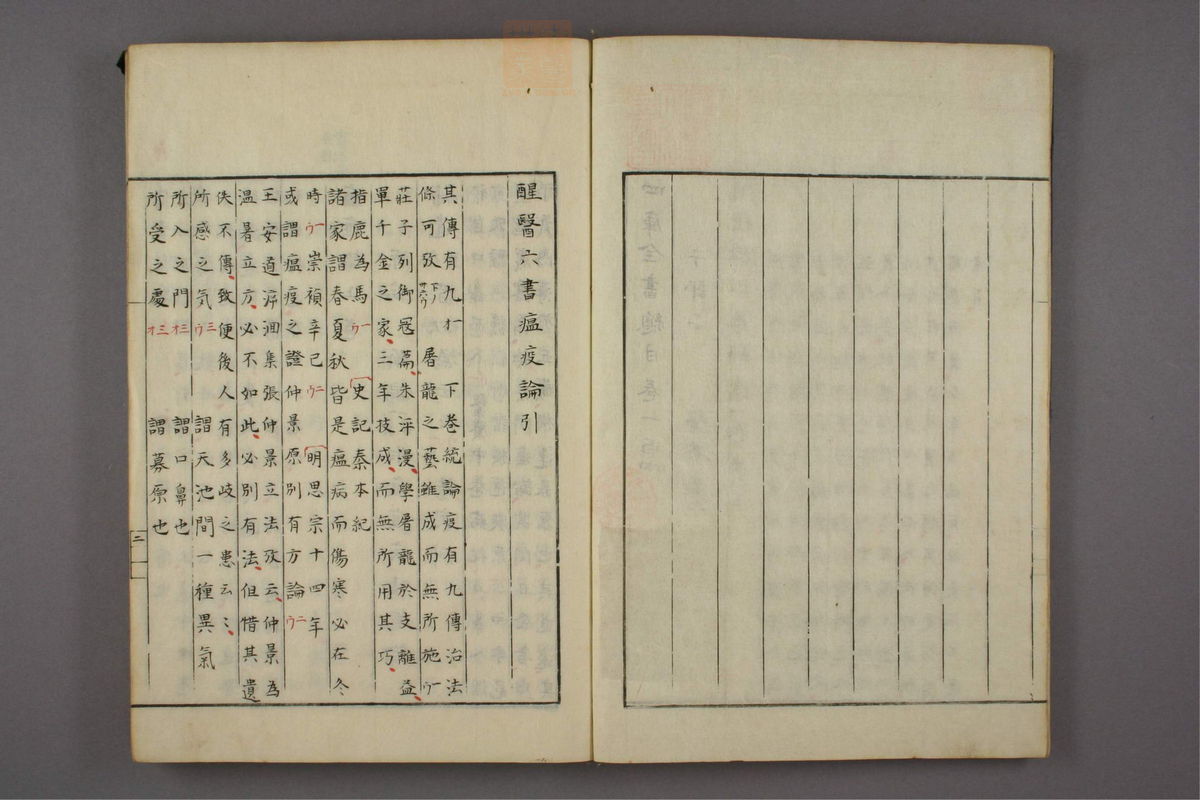 醒醫六書瘟疫論引
其傳有九才一 下卷統論疫有九傳治法
條可攷下ノ廿六ウ 屠龍之藝雖成而無所施ウ一
莊子列御冦篇朱泙漫學屠龍於支離益
單千金之家三年技成而無所用其巧
指鹿為馬ウ一 史記秦本紀
諸家謂春夏秋皆是瘟病而傷寒必在冬
時ウ一 崇禎辛巳ウ二 明思宗十四年
或謂瘟疫之證仲景原別有方論ウ二
王安道泝洄集張仲景立法攷云仲景為
温暑立方必不如此必別有法但惜其遺
佚不傳致使後人有多岐之患云〻
所感之気ウ三 謂天池間一種異氣
所入之門才三 謂口鼻也
所受之處才三 謂募原也
二